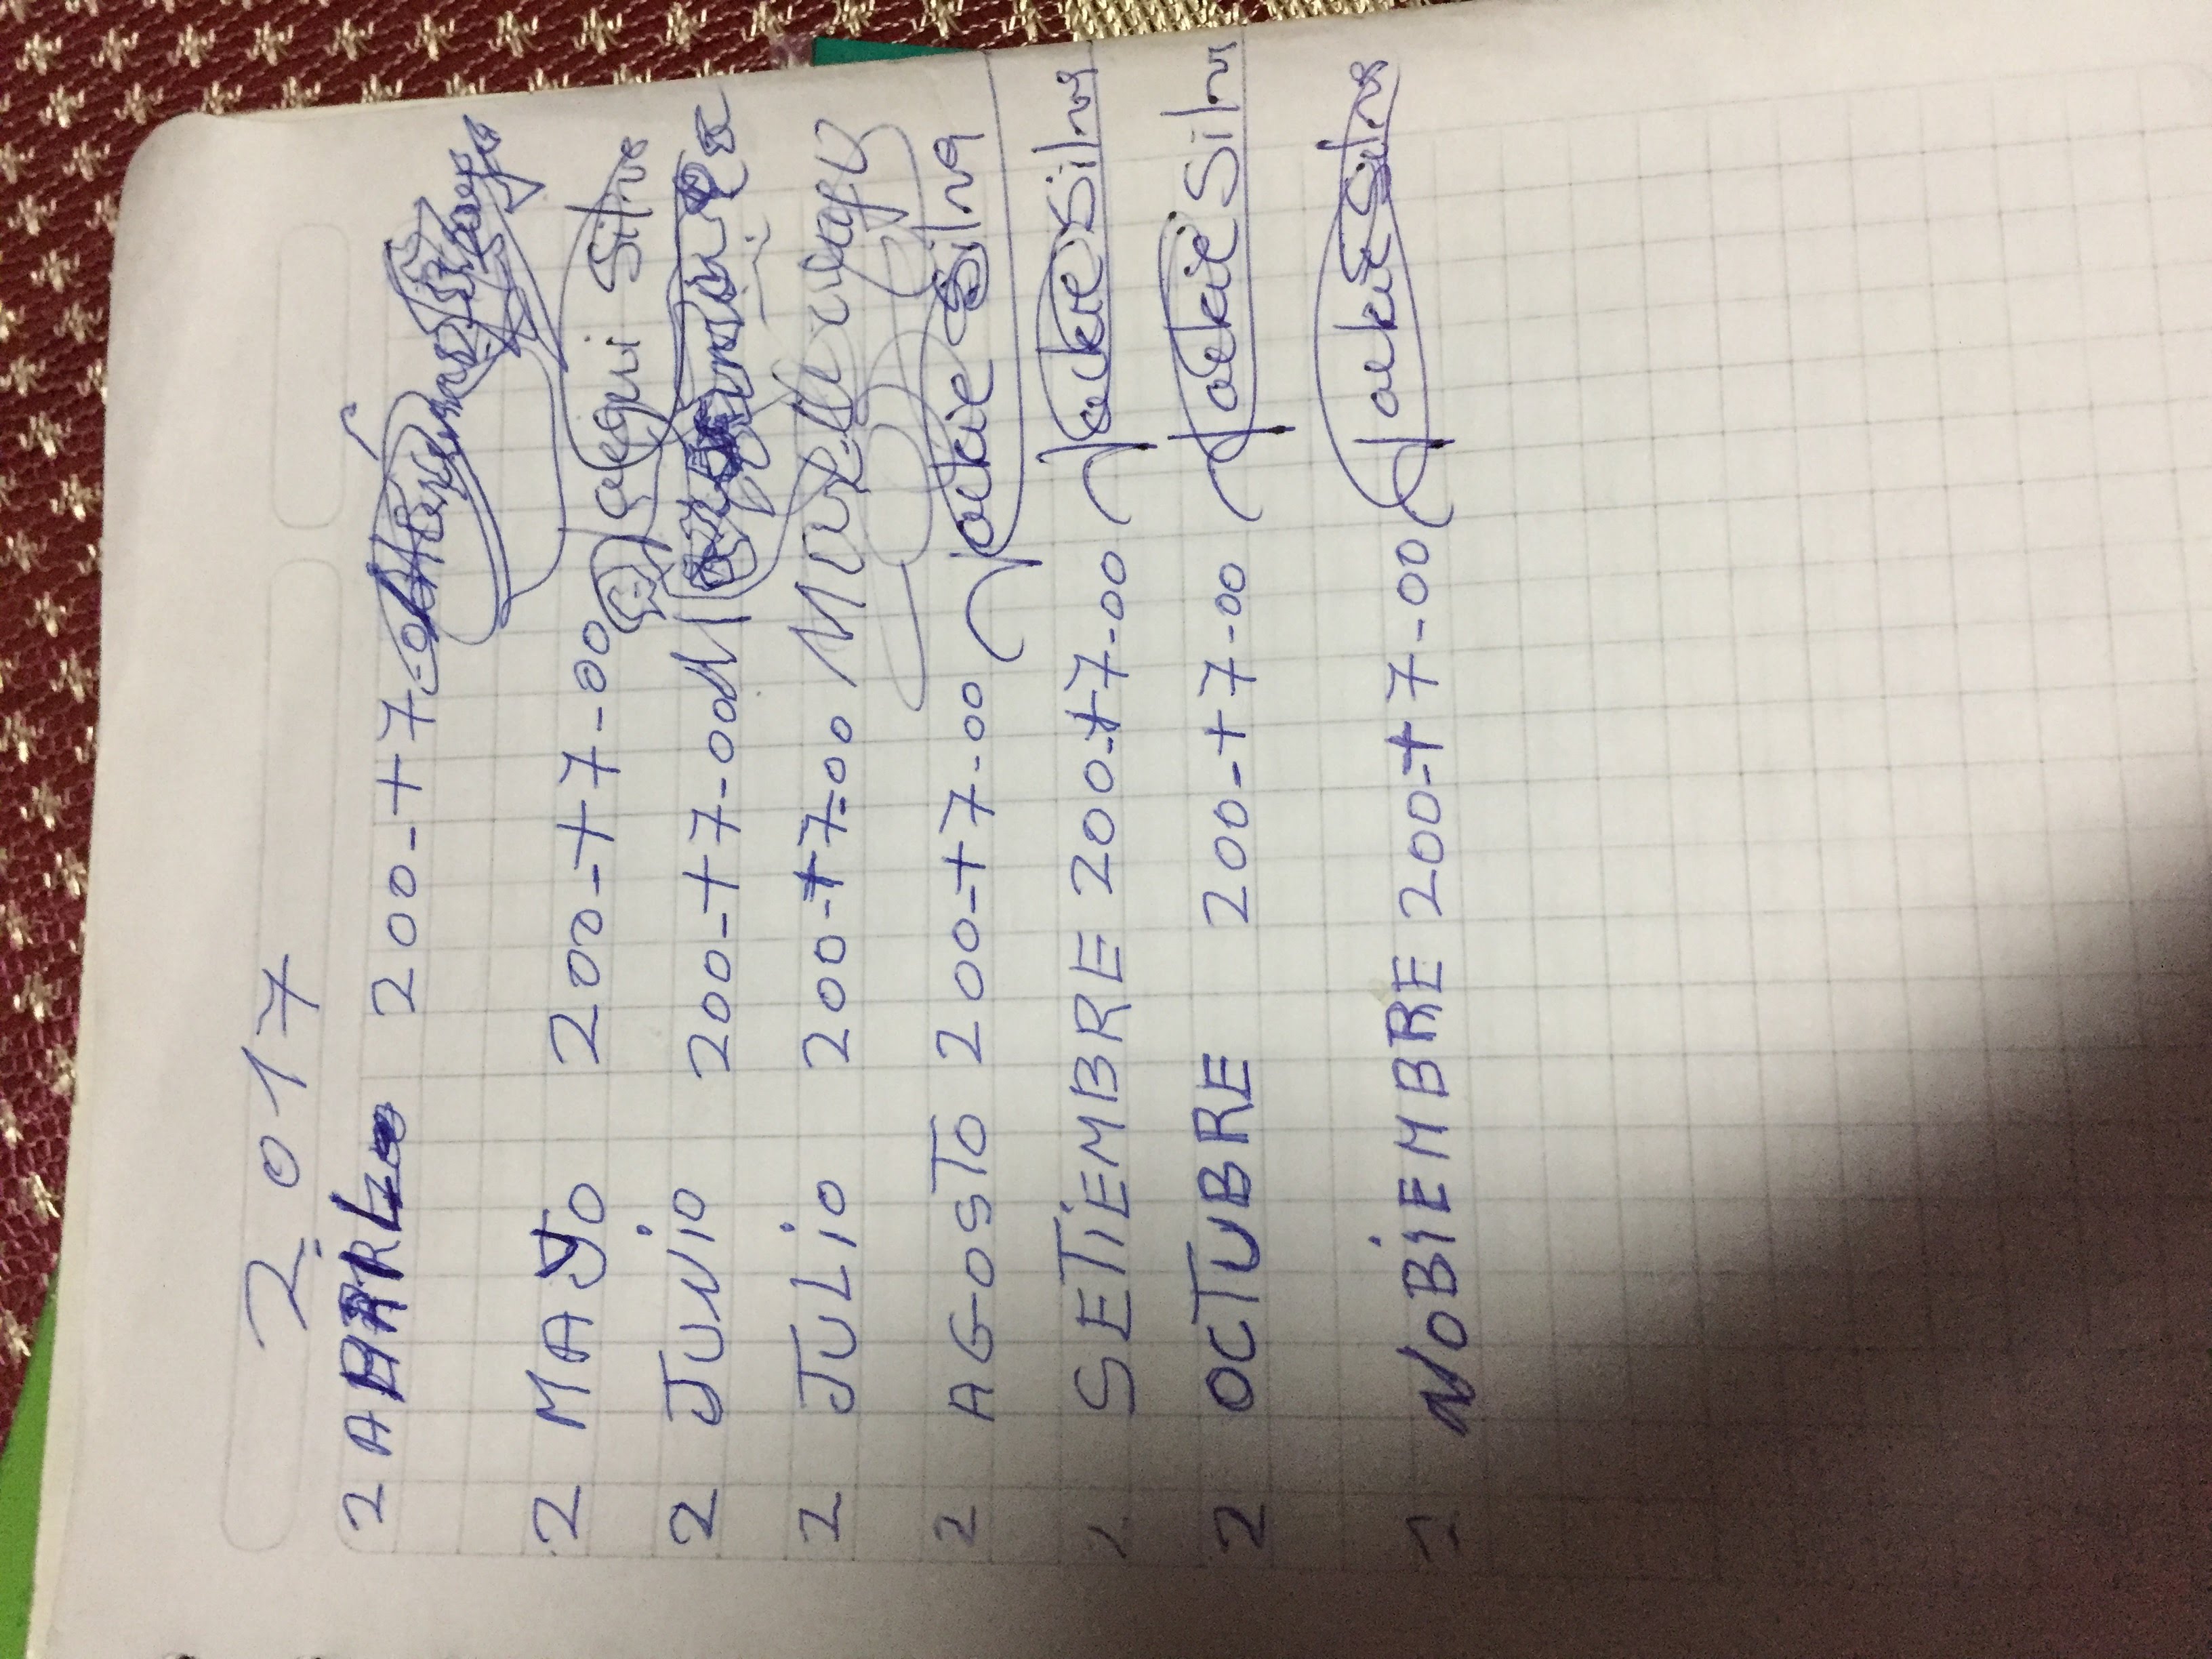 2.017
2 ABRIL 200-+7-
2 MAYO 200-+7-00 Jaequi Silva
2 JUNIO 200-+7-00
2 JULIO 200-+7-00
2 AGOSTO 200-+7-00 Jackie Silva
2 SETIEMBRE 200-+7-00 Jackie Silva
2 OCTUBRE 200-+7-00 Jackie Silva
NOBIEMBRE 200-+7-00 Jackie Silva